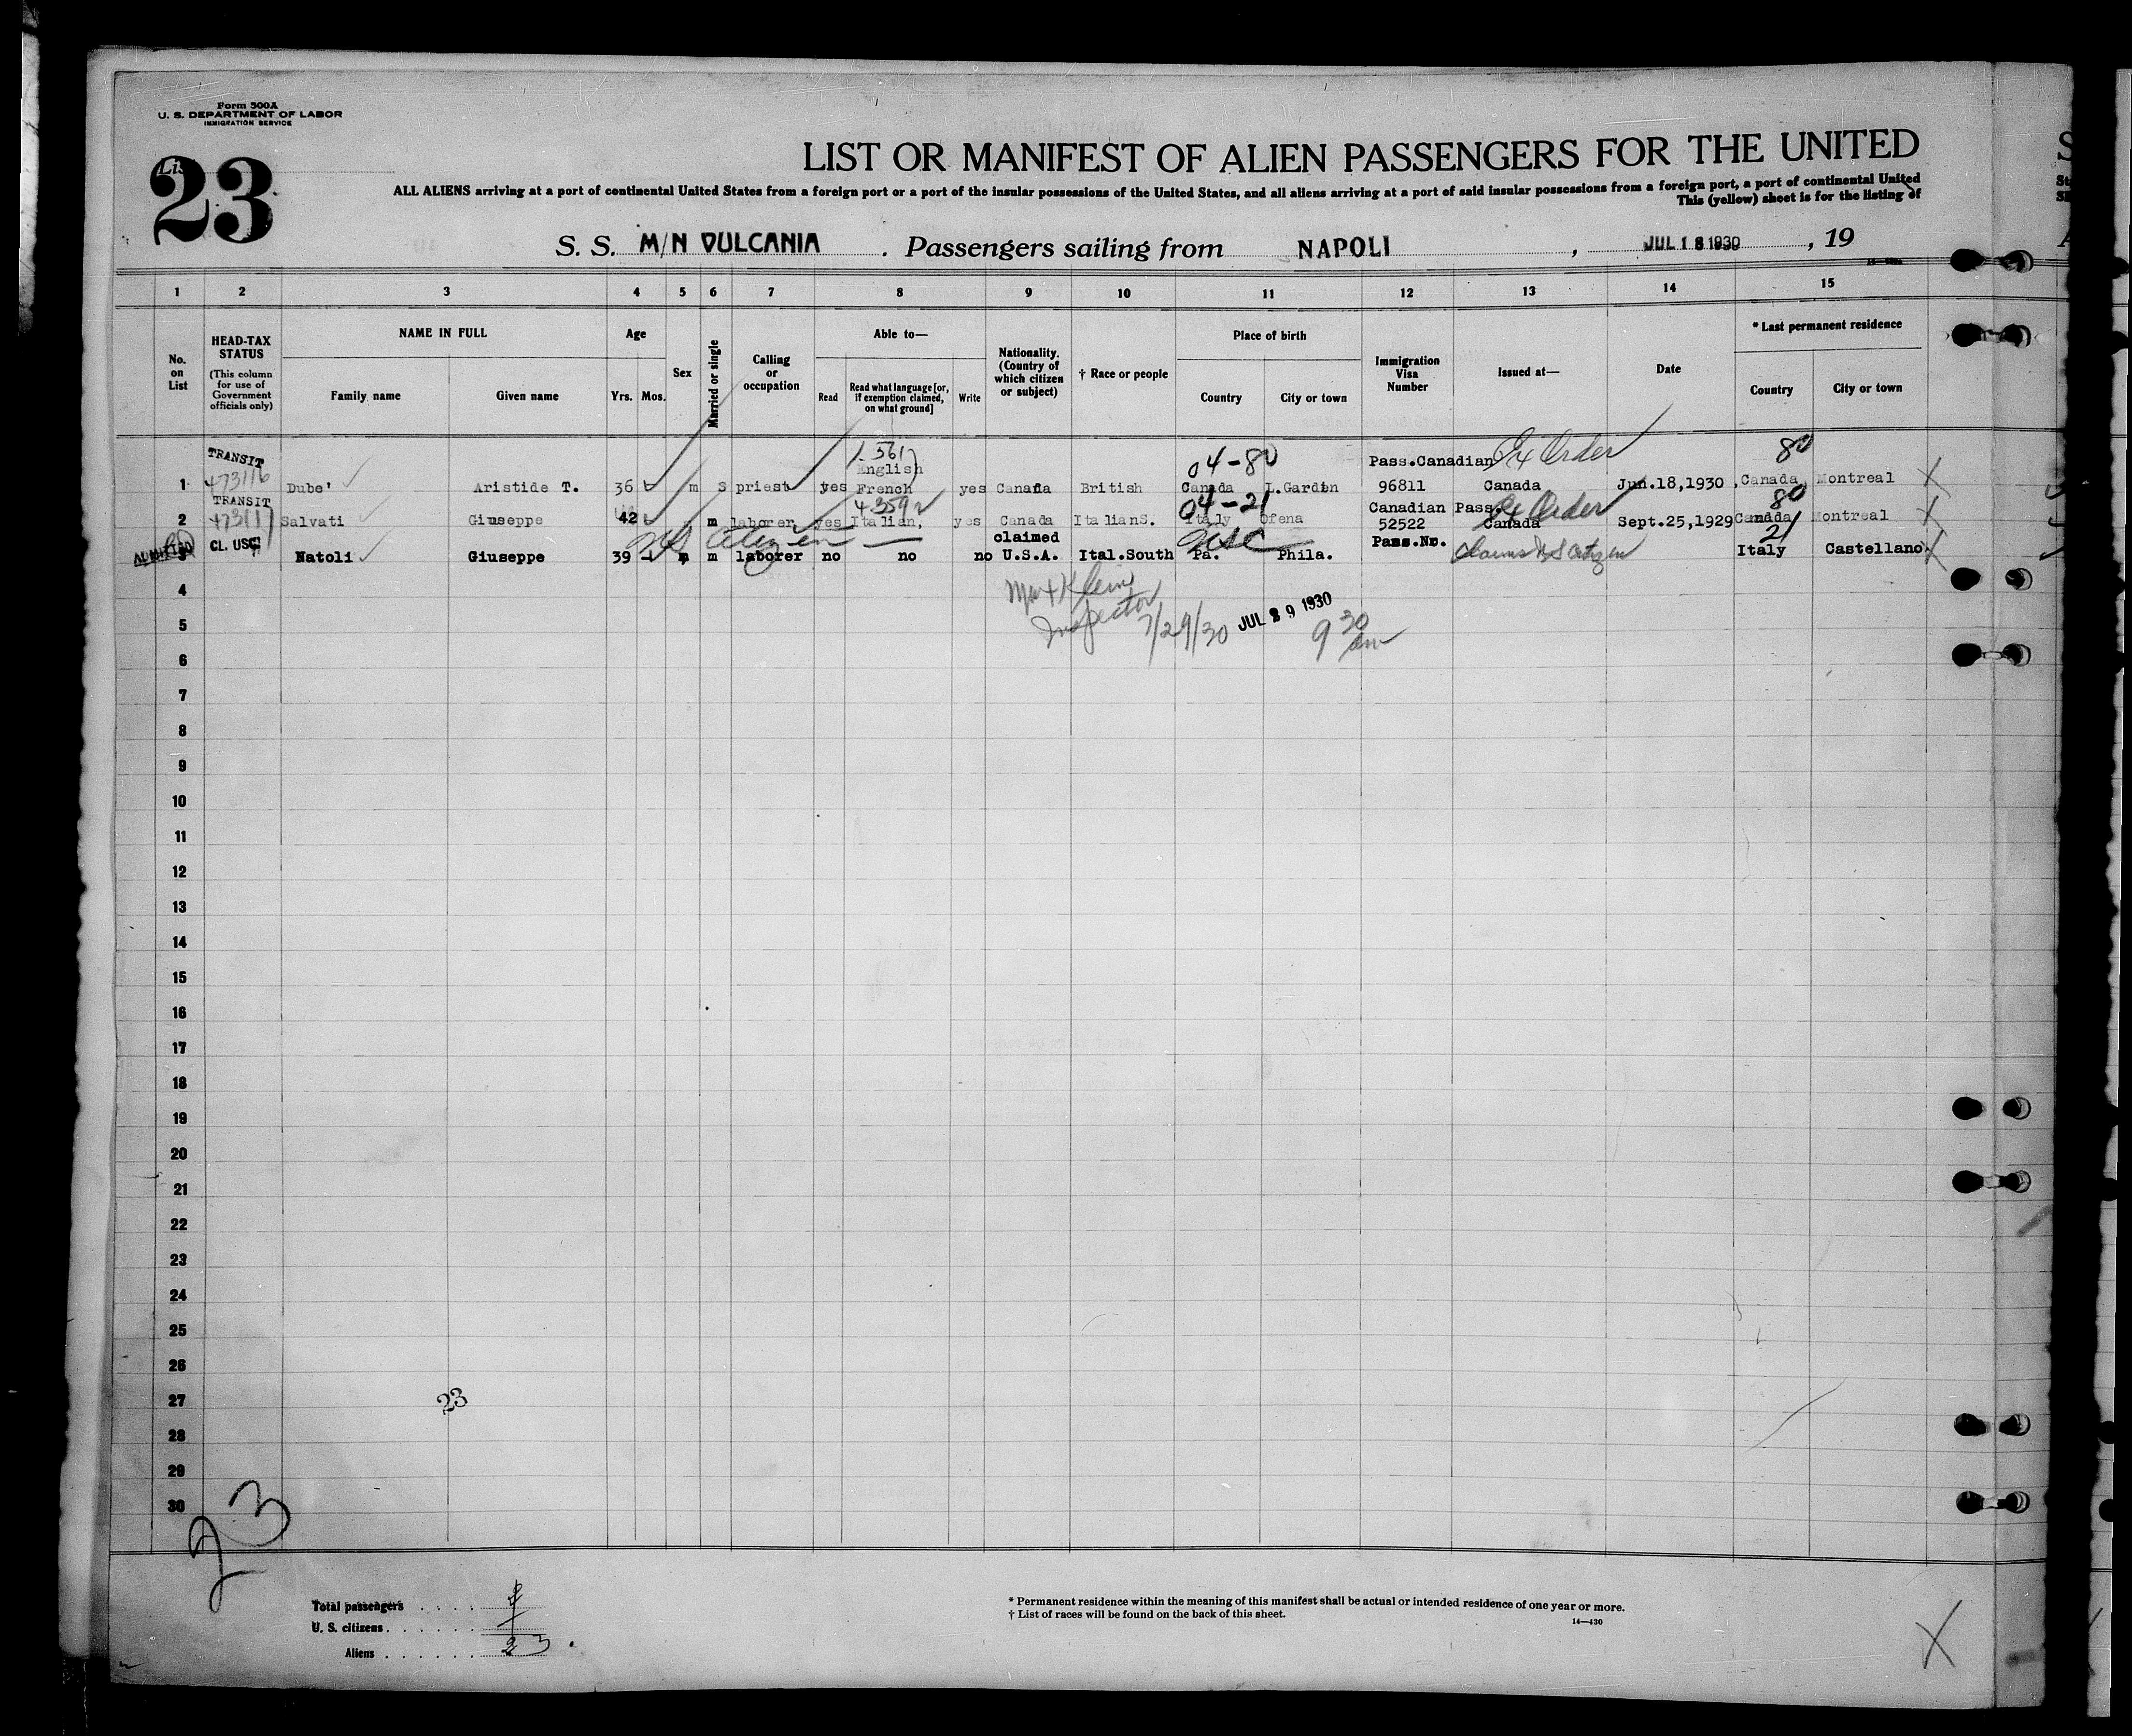 Form 500A
U. S. DEPARTMENT OF LABOR
IMMIGRATION SERVICE
List
23
LIST OR MANIFEST OF ALIEN PASSENGERS FOR THE UNITED
ALL ALIENS arriving at a port of continental United States from a foreign port or a port of the insular possessions of the United States, and all aliens arriving at a port of said insular possessions from a foreign port, a port of continental United
This (yellow) sheet is for the listing of
S. S. M/N VULCANIA . Passengers sailing from NAPOLI , JUL 18 1930 , 19
1 2 3 4 5 6 7 8 9 10 11 12 13 14 15
No. on List
HEAD-TAX STATUS
(This column for use of Government officials only)
NAME IN FULL
Family name
Given name
Age
Yrs. Mos.
Sex
Married or single
Calling or occupation
Able to—
Read
Read what language [or, if exemption claimed, on what ground]
Write
Nationality. (Country of which citizen or subject)
† Race or people
Place of birth
Country
City or town
Immigration Visa Number
Issued at—
Date
* Last permanent residence
Country
City or town
TRANSIT 1-5617 English 04-80 Pass.Canadian Ex Order 80
473116
1 Dube' Aristide T. 36 m s priest yes French yes Canada British Canada L.Gardin 96811 Canada Jun.18,1930, Canada Montreal X
TRANSIT 04-21 Canadian Pass. Ex Order 80
473117
2 Salvati Giuseppe 42 m laborer yes Italian, yes Canada ItalianS. Italy Ofena 52522 Canada Sept.25,1929 Canada Montreal X
ADMITTED CL. USC US Citizen claimed USC Pass.No. Claims U S Citizen 21
3 Natoli Giuseppe 39 m m laborer no no no U.S.A. Ital.South Pa. Phila. Italy Castellano X
4
Inspector 7/29/30 JUL 29 1930 9 30 am
5
6
7
8
9
10
11
12
13
14
15
16
17
18
19
20
21
22
23
24
25
26
27 23
28
29
30
23
Total passengers
U. S. citizens
Aliens 2
* Permanent residence within the meaning of this manifest shall be actual or intended residence of one year or more.
† List of races will be found on the back of this sheet.
14—430
X